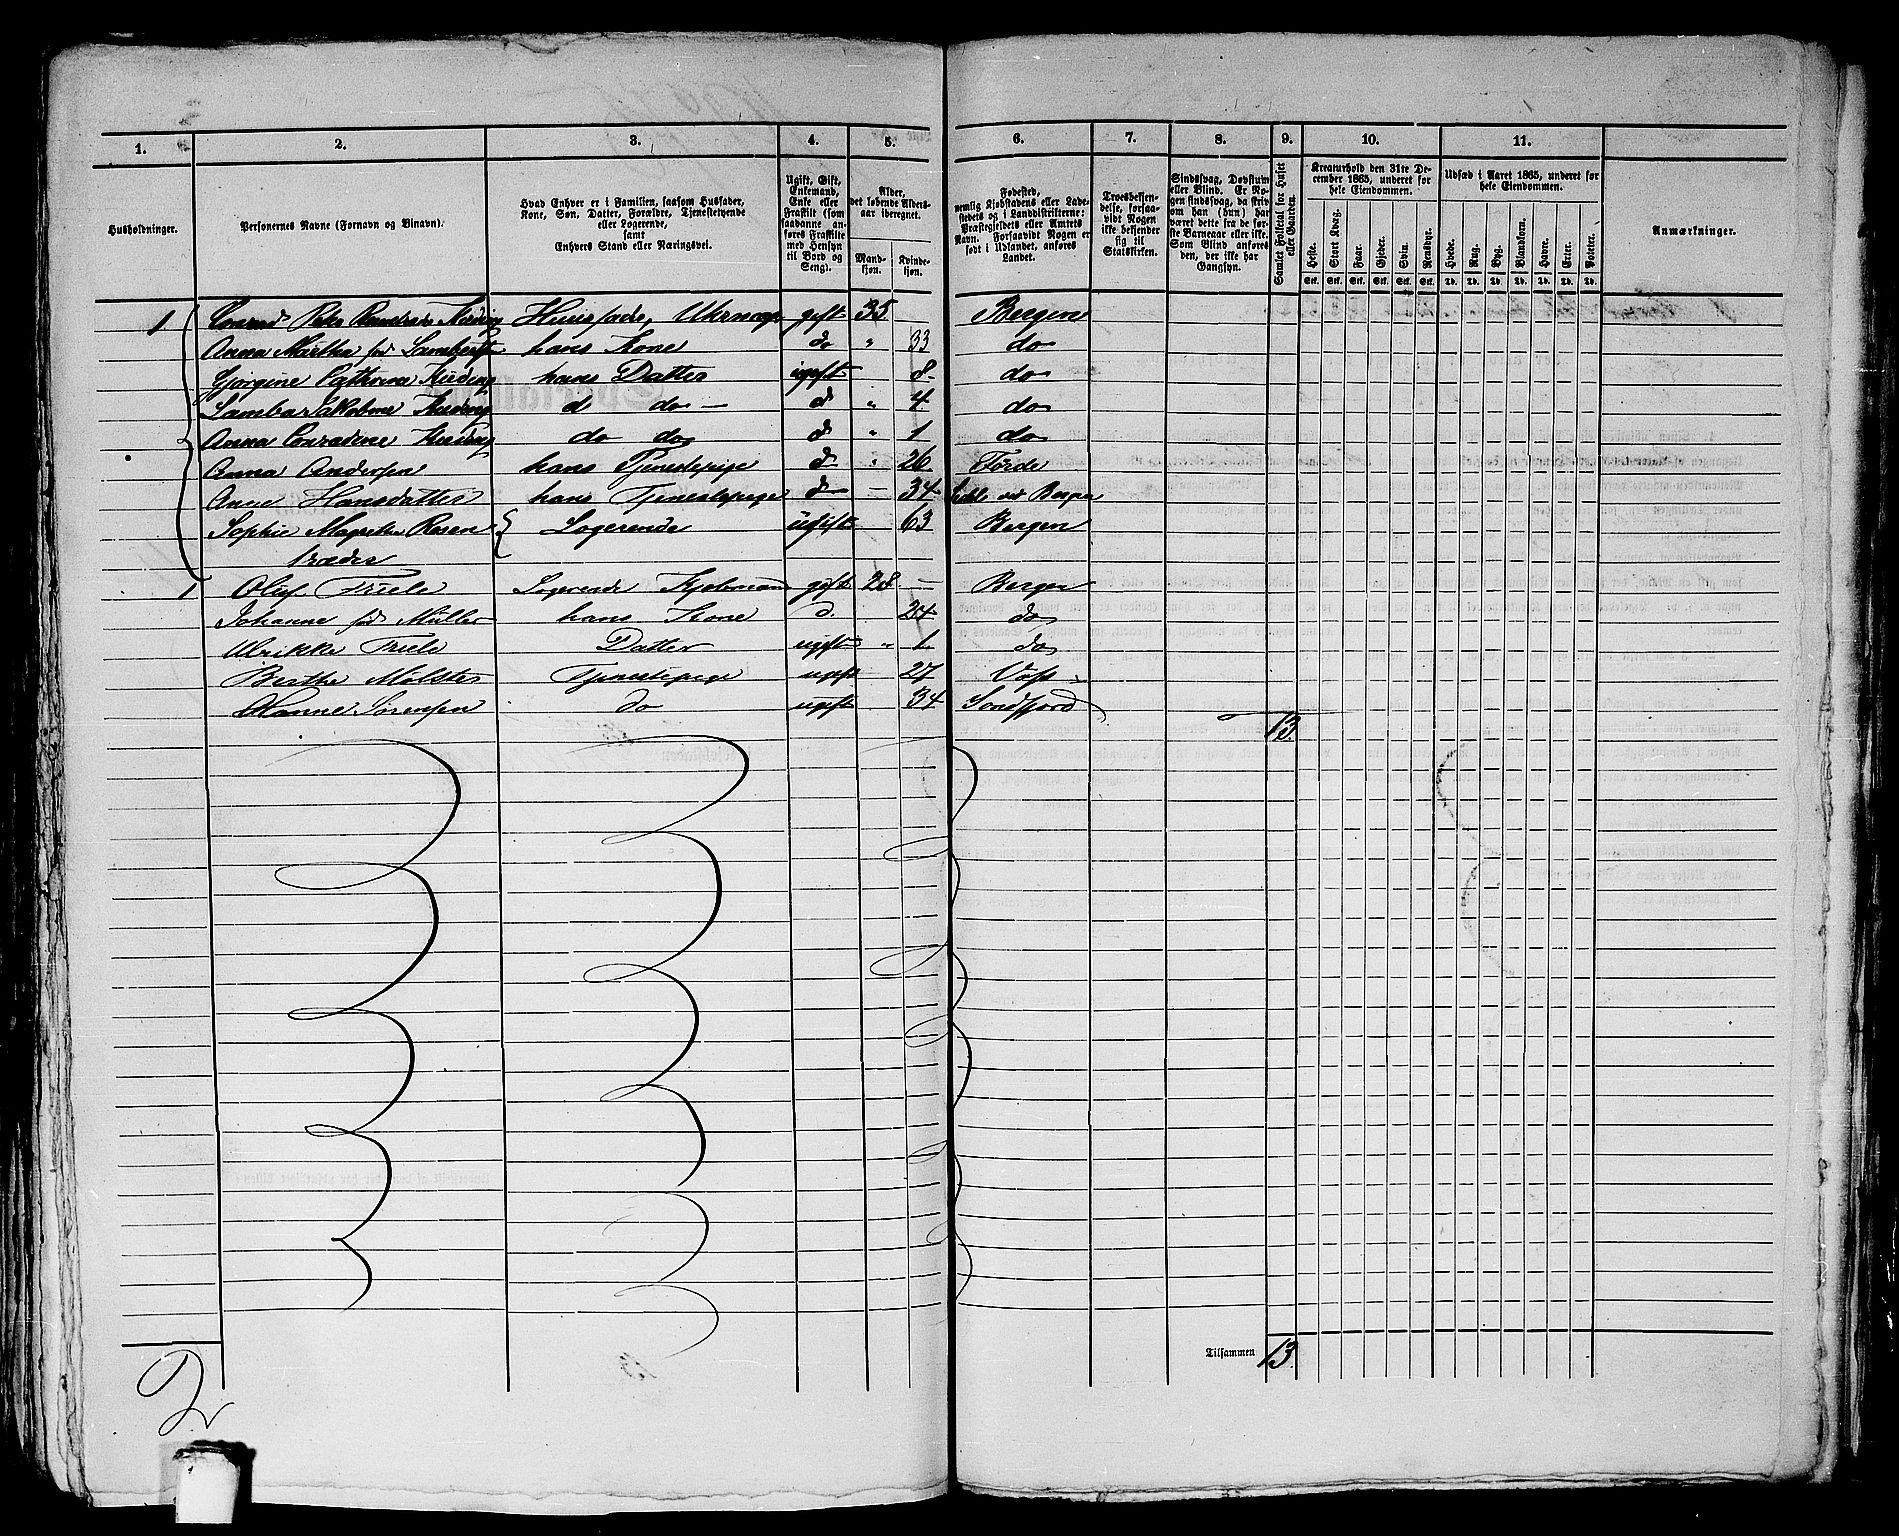 1. 2. 3. 4. 5. 6. 7. 8. 9. 10. 11.
Husholdninger.
Personernes Navne (Fornavn og Binavn).
Hvad Enhver er i Familien, saasom Husfader,
Kone, Søn, Datter, Forældre, Tjenestetyende
eller Logerende,
samt
Enhvers Stand eller Næringsvei.
Ugift, Gift,
Enkemand,
Enke eller
Fraskilt (som
saadanne an-
føres Fraskilte
med Hensyn
til Bord og
Seng).
Alder,
det løbende Alders-
aar iberegnet.
Mand-
kjøn.
Kvinde-
kjøn.
Fødested,
nemlig Kjøbstadens eller Lade-
stedets og i Landdistrikterne:
Præstegjeldets eller Amtets
Navn. Forsaavidt Nogen er
født i Udlandet, anføres
Landet.
Troesbekjen-
delse, forsaa-
vidt Nogen
ikke bekjender
sig til
Statskirken.
Sindssvag, Døvstum
eller Blind. Er No-
gen sindssvag, da skriv
om han (hun) har
været dette fra de før-
ste Barneaar eller ikke.
Som Blind anføres
den, der ikke har
Gangsyn.
Samlet Folketal for Huset
eller Gaarden.
Kreaturhold den 31te De-
cember 1865, underet for
hele Eiendommen.
Heste. Stort Kvæg. Faar. Gjeder. Svin. Rensdyr.
Stk. Stk. Stk. Stk. Stk. Stk.
Udsæd i Aaret 1865, underet for
hele Eiendommen.
Hvede. Rug. Byg. Blandkorn. Havre. Erter. Poteter.
Td. Td. Td. Td. Td. Td. Td.
Anmærkninger.
1 Huusfader, gift 35 Bergen
Anna Martha fød hans Kone do " 33 do
Gjørgine hans Datter ugift 8 do
d do — d " 4 do
Anna Conradine do do d " 1 do
Anna Andersen hans Tjenestepige d " 26 Førde
Anne Hansdatter hans Tjenestepige d — 34 ved Bergen
Sophie Magretha Rosen Logerende ugift 63 Bergen
træder
1 Oluf Friele Logerende Kjøbmand gift 28 — Bergen
Johanne fød Müller hans Kone d. 24 do
Ulrikke Friele Datter ugift " 1 do
Berthe Mølster Tjenestepige ugift 27 Voss
Hanne Sørensen do ugift 34 Søndfjord
13
Tilsammen 13